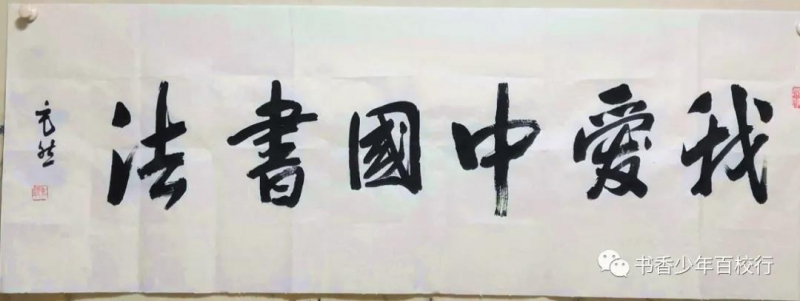 我愛中國書法
书香少年百校行